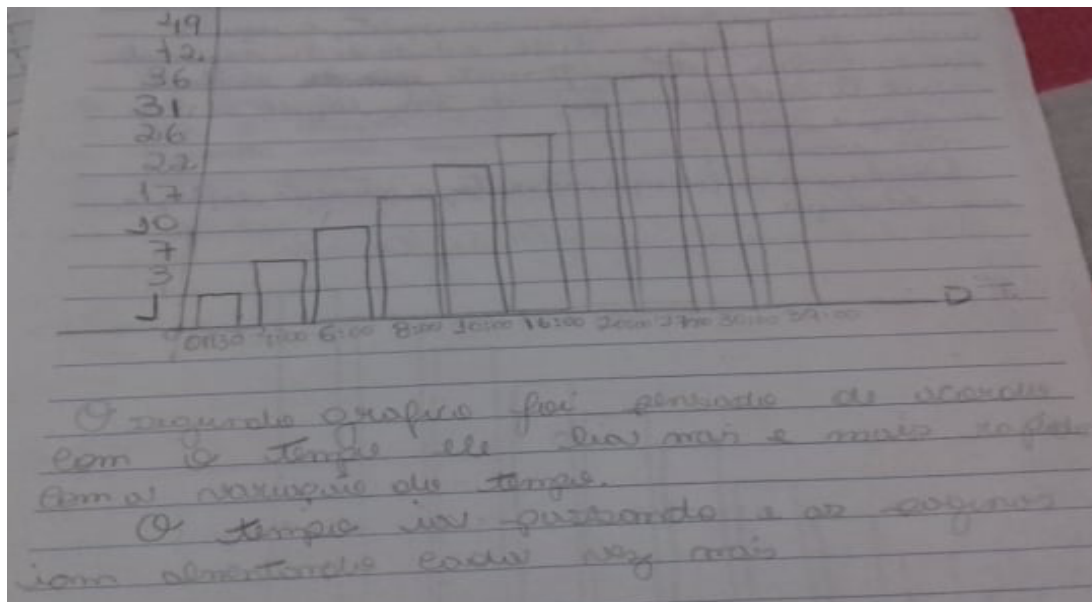 49
42
36
31
26
22
17
10
7
3
1
01:30 4:00 6:00 8:00 10:00 16:00 20:00 27:00 30:00 39:00
O segundo grafico foi pensado de acordo
com o tempo ele ia mais e mais
com a variação do tempo.
O tempo ia passando e as paginas
iam almentando cada vez mais